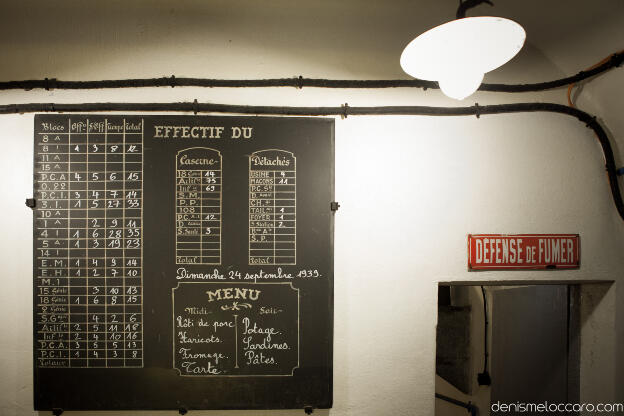 EFFECTIF DU
Blocs Offrs S.Off Troupe Total
8 A
8 I 1 3 8 12
11 A
15 A
P.C.A 4 5 6 15
O.22
P.C.I. 3 4 7 14
1 5 27 33
10 A
1 A 2 9 11
4 I 1 6 28 35
5 A 1 3 19 23
14 I
E.M. 1 4 9 14
E.H. 1 2 7 10
M.I
15 Génie 3 10 13
18 Génie 1 6 8 15
8 Génie
4 2 6
2 5 11 18
Inf 2 4 10 16
P.C.A. 3 5 5 13
P.C.I. 1 4 3 8
Totaux
Caserne
18 Génie 14
Artie 75
Inf 69
S.M.
P.P.
108
P.C.A.I. 12
S. Santé 3
Total
Détachés
USINE 4
MAÇONS 11
P.C.
CH.
TAIL 4
FOYER 1
2
S.P.
Total
Dimanche 24 septembre 1939.
MENU
Midi- Soir-
Pâti de porc
Haricots.
Fromage.
Tarte.
Potage.
Sardines.
Pâtes.
DÉFENSE DE FUMER
denismeloccaro.com